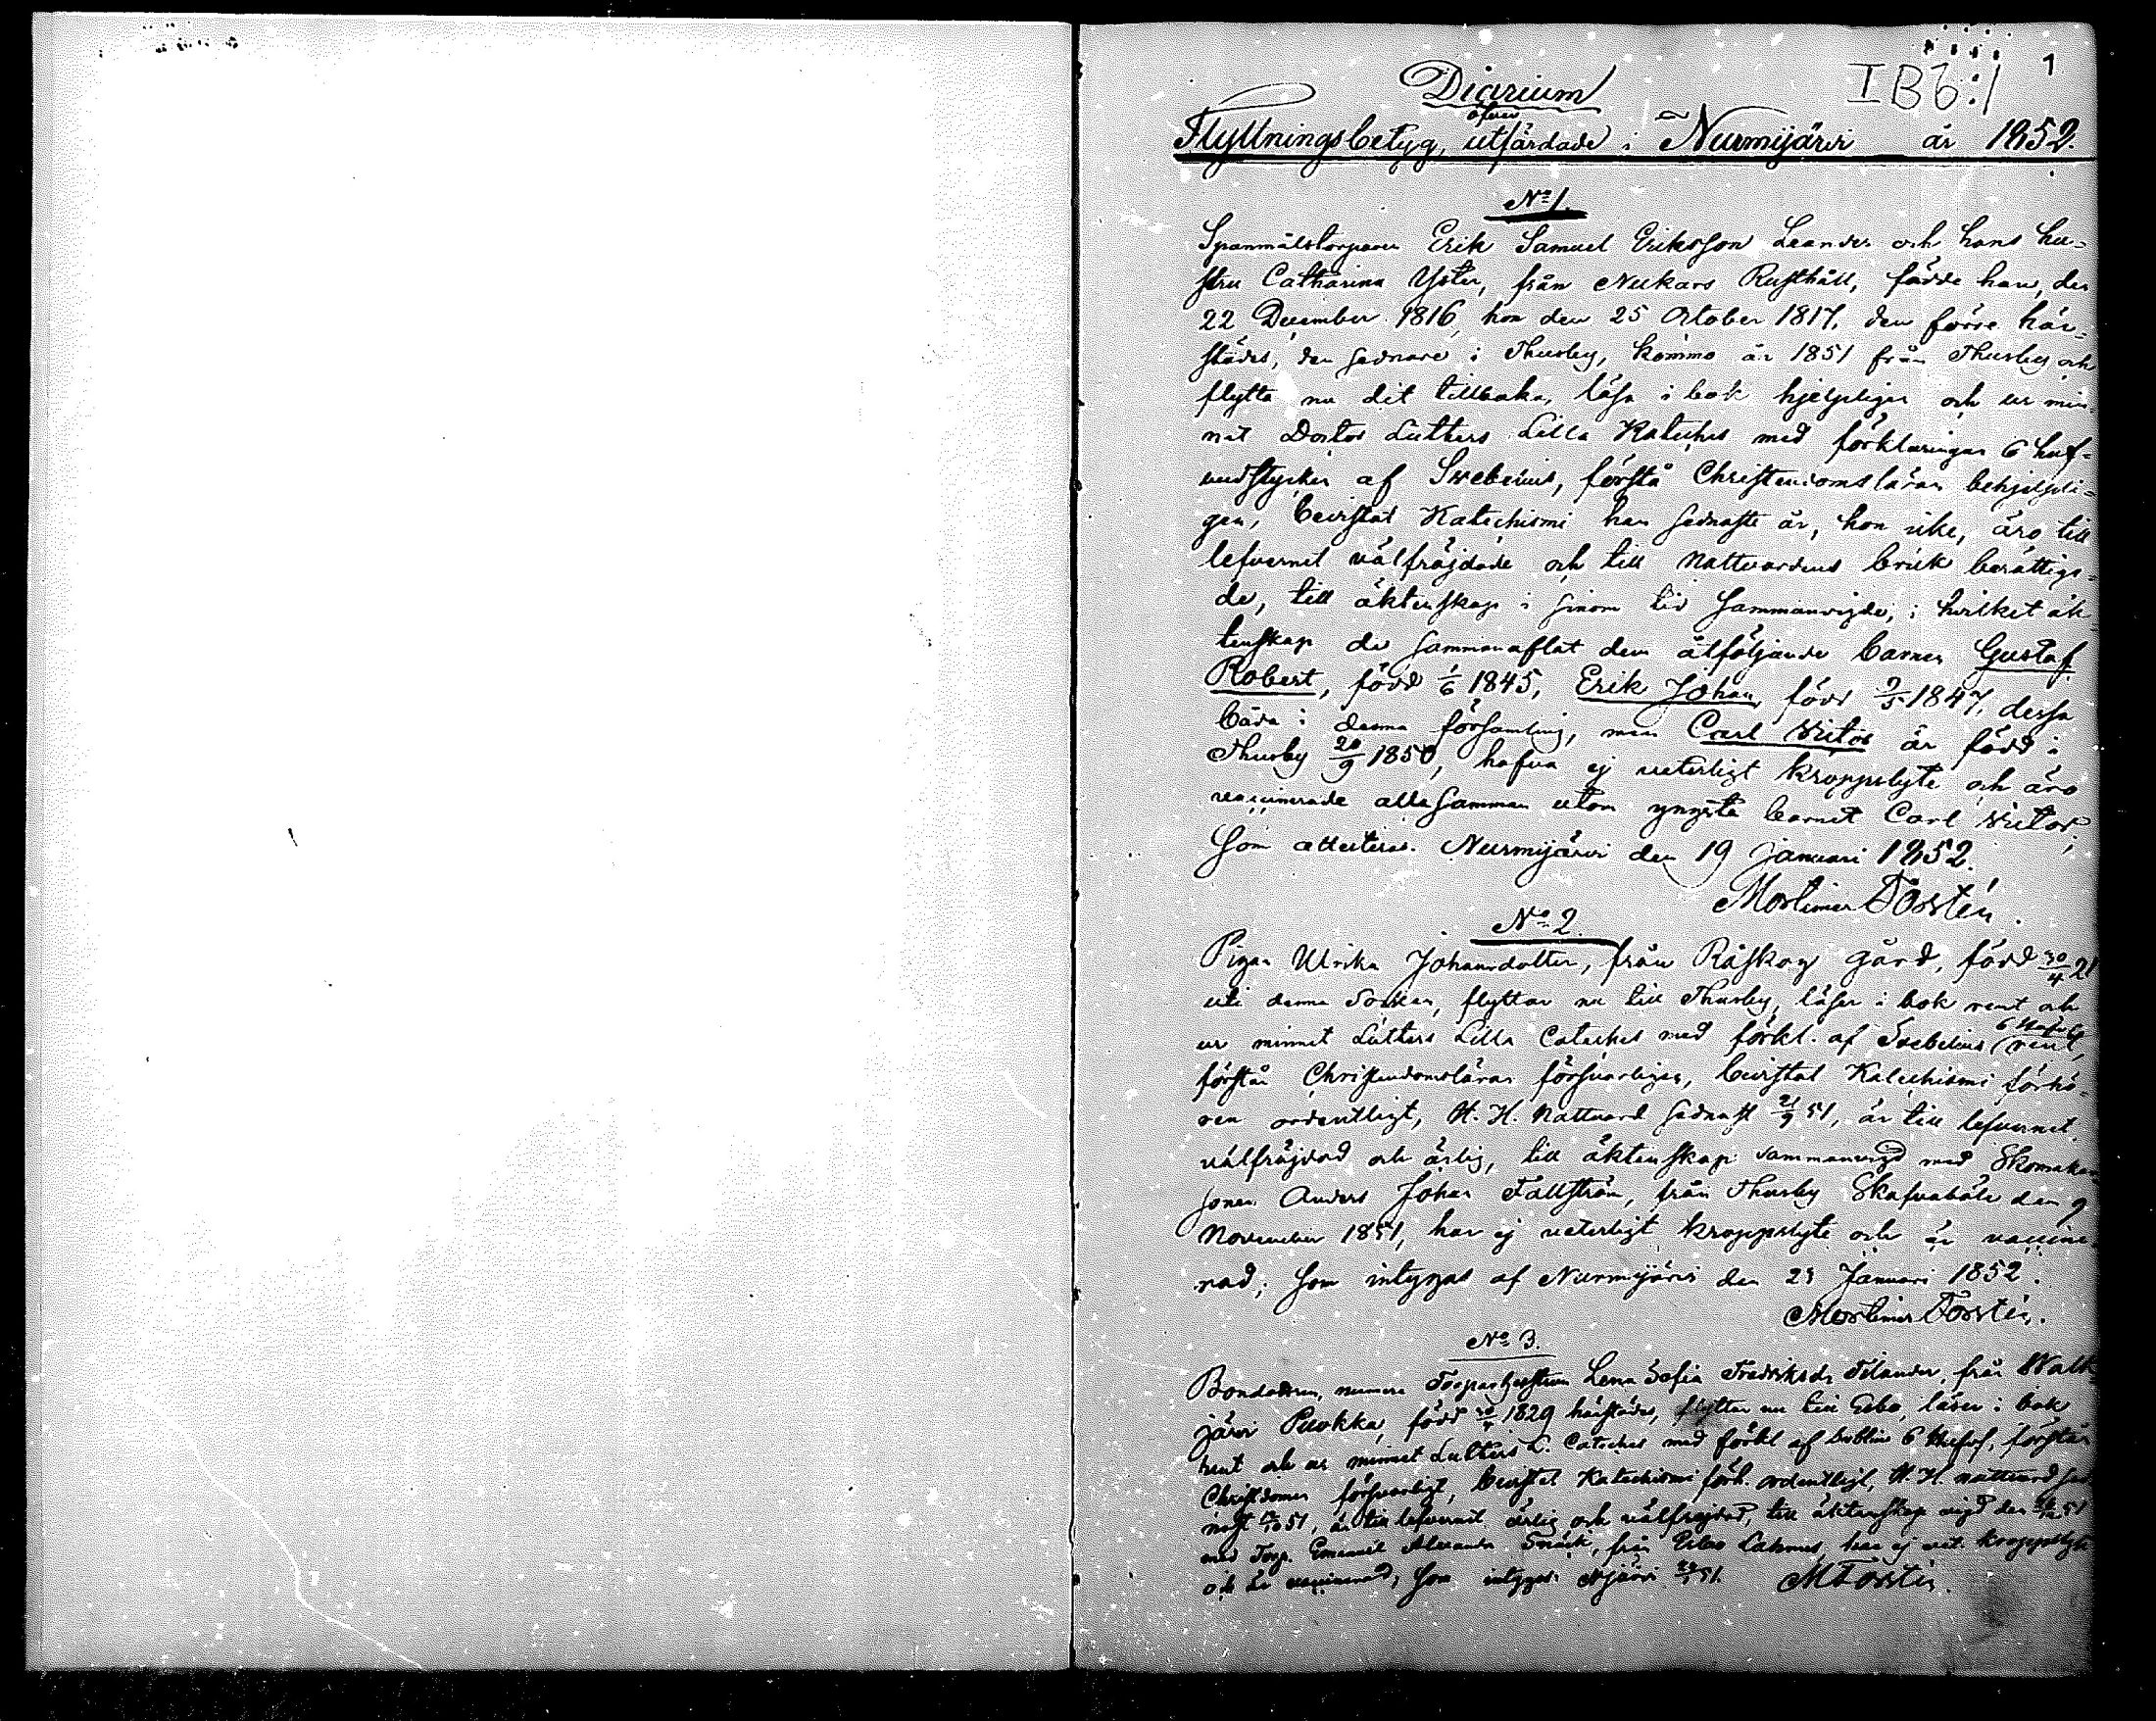 1
I B b:1
Diarium
öfver
Flyttningsbetyg, utfärdade i Nurmijärvi år 1852.
No 1.
Spanmålstorparen Erik Samuel Eriksson Leander och hans hu=
stru Catharina Yster, från Nukars Rusthåll, födde han, den
22 December 1816, hon den 25 October 1817, den förre här=
städes, den sednare i Thusby, kommo år 1851 från Thusby och
flytta nu dit tillbaka, läsa i bok hjelpligen och ur min=
net Doctor Luthers Lilla Kateches med förklaringar 6 huf=
vudstycken af Swebelius, förstå Christendomsläran behjelpli=
gen, bevistat Katechismi han sednaste år, hon icke, äro till
lefvernet välfräjdade och till Nattvardens bruk berättiga=
de, till äktenskap i sinom tid sammanvigde, i hvilket äk=
tenskap de sammanaflat dem åtföljande barnen Gustaf
Robert, född 1/6 1845, Erik Johan, född 9/5 1847, dessa
båda i denna församling, men Carl Victor är född i
Thusby 20/9 1850, hafva ej veterligt kroppslyte och äro
vaccinerade allasamman utom yngsta barnet Carl Victor;
Som attesteras. Nurmijärvi den 19 Januari 1852.
Mortimer Forstén.
No 2.
Pigan Ulrika Johansdotter, från Råskog gård, född 30/4 21
uti denna Socken, flyttar nu till Thusby, läser i bok rent och
ur minnet Luthers Lilla Cateches med förkl. af Svebelius 6 Hufvst. rent,
förstår Christendomsläran försvarligen, bevistat Katechismi förhö=
ren ordentligt, H. H. Nattvard sednast 21/9 51, är till lefvernet
välfräjdad och ärlig, till äktenskap sammanvigd med Skomakare
sonen Anders Johan Fallström, från Thusby Skafvaböle den 9
November 1851, har ej veterligt kroppslyte och är vaccine=
rad; Som intygas af Nurmijärvi den 23 Januari 1852.
Mortimer Forstén.
No 3.
numera Torparhustrun Lena Sofia Fredriksdr Filander, från Walk
järvi Puokka, född 1829 härstädes, flyttar nu till Esbo, läser i bok
rent och ur minnet Luthers L. Cateches med förkl af 6 Hufvf, förstår
Christdomen försvarligt, bevistat Katechismi förh. ordentligt, H. H. nattvard sed
nast 51, är till lefvernet ärlig och välfräjdad, till äktenskap vigd den 51
med Torp. Emanuel Alexander från Esbo har ej vet. kroppslyte
och är vaccinerad; Som intygar NJärvi 51. M Forstén.